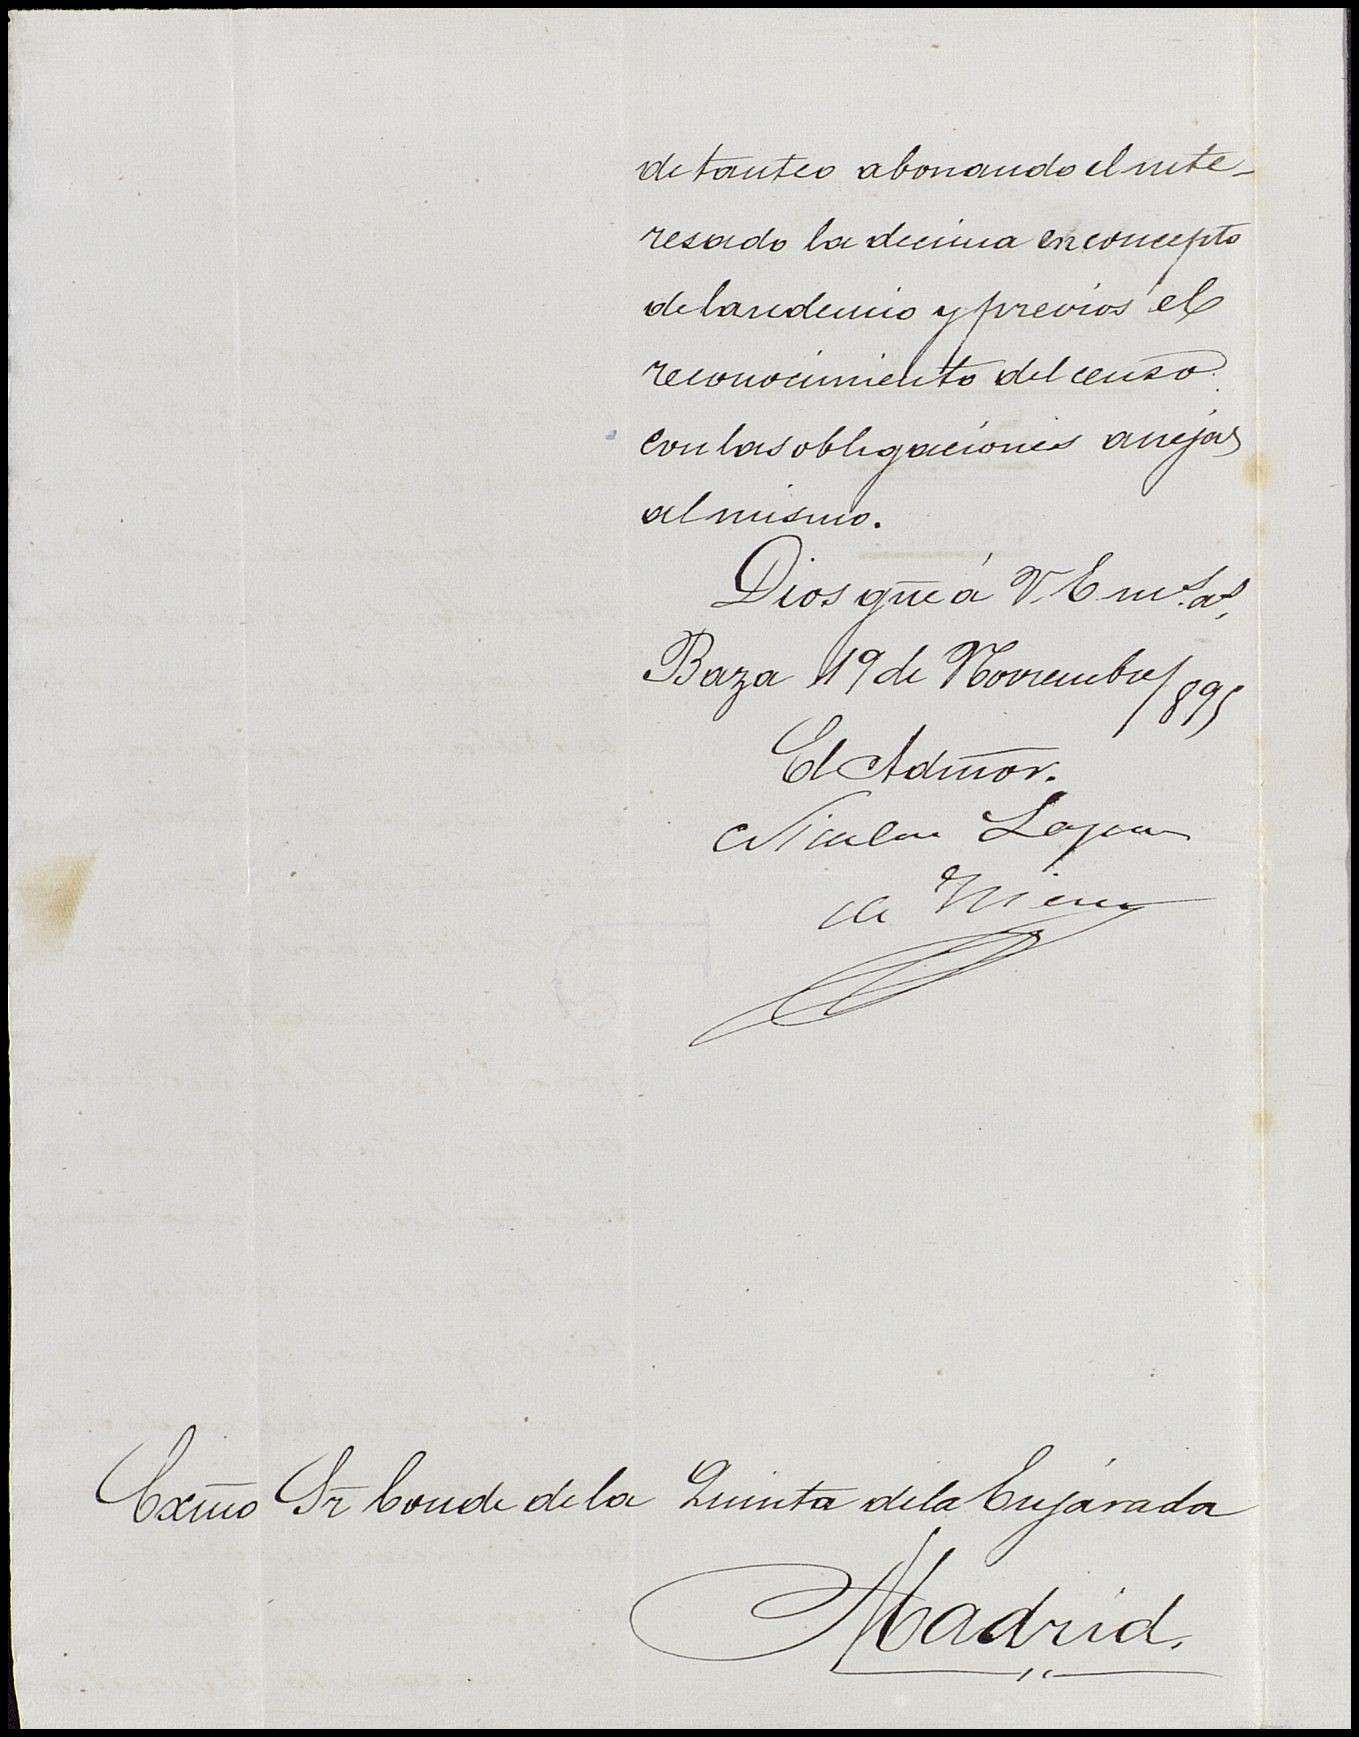 de tanteo abonando el inte-
resado la decima en concepto
de laudemio y previos el
reconocimiento del censo
con las obligaciones anejas
al mismo.
Dios gũe á V. E. m.s a.s
Baza 19 de Noviembre/895
El Admõr.
Nicolas
de
Exmõ Sr̃ Conde de la Quinta de la Enjárada
Madrid.